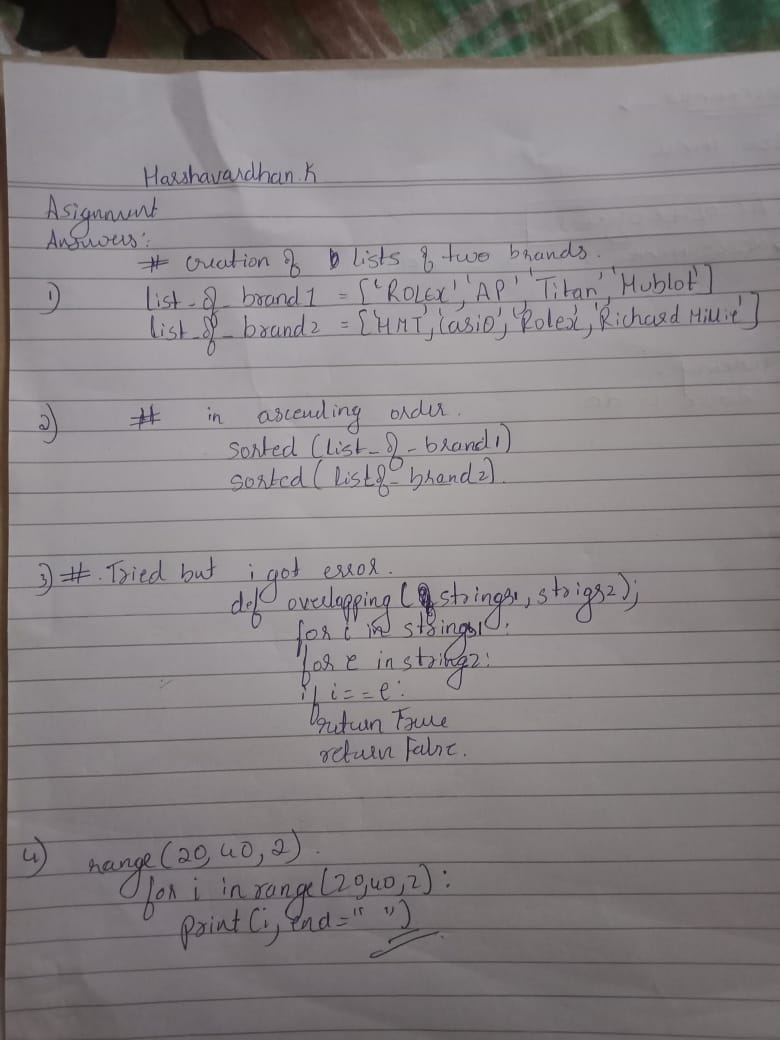 Harshavardhan.K
Asignment
Answers:
# creation of lists of two brands.
1) list_of_brand1 = ['ROLEX', 'AP', 'Titan', 'Hublot']
list_of_brand2 = ['HMT', 'Casio', 'Rolex', 'Richard Millie']
2) # in ascending order.
sorted (list_of_brand1)
sorted (listof_brand2).
3) #. Tried but i got error.
def overlapping (strings1, strigs2);
for i in strings1:
for e in string2:
if i==e:
return True
return False.
4) range(20,40,2).
for i in range(20,40,2):
print(i, end=" ")